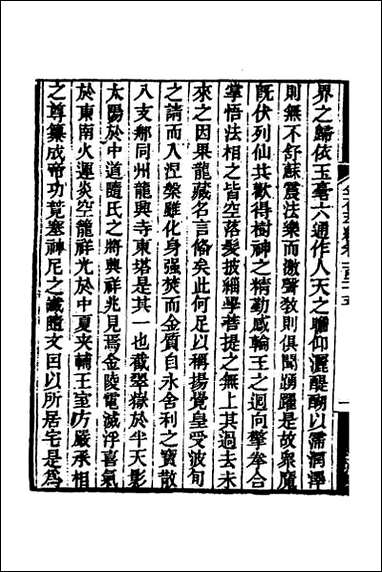 界之歸依玉毫六通作人天之瞻仰灑醍醐以濡潤澤
則無不舒蘇震法樂而激聲敎則俱聞踴躍是故衆魔
旣伏列仙共歎得樹神之精勤感輪王之迴向擎拳合
掌悟法相之皆空落髮披緇學菩提之無上其過去未
來之因果龍藏名言俻矣此何足以稱揚覺皇受波旬
之請而入涅槃雖化身强焚而金質自永舍利之寶散
入支郍同州龍興寺東塔是其一也截翠嶽於半天影
太陽於中道隨氏之將興祥兆見焉金陵電滅浮喜氣
於東南火運炎空龍祥光於中夏夾輔王室方嚴承相
之尊纂成帝功竟塞神尼之讖隨文囙以所居宅是爲